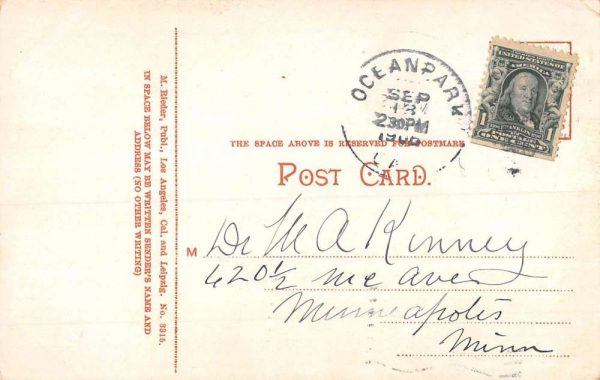 M. Rieder, Publ., Los Angeles, Cal. and Leipzig. No. 3315.
IN SPACE BELOW MAY BE WRITTEN SENDER'S NAME AND
ADDRESS (NO OTHER WRITING)
OCEANPARK
SEP
13
230PM
UNITED STATES OF
AMERICA
FRANKLIN
1 1
ONE CENT
THE SPACE ABOVE IS RESERVED FOR POSTMARK
POST CARD.
M Dr M A Kenney
420½ ave
Minneapolis
Minn